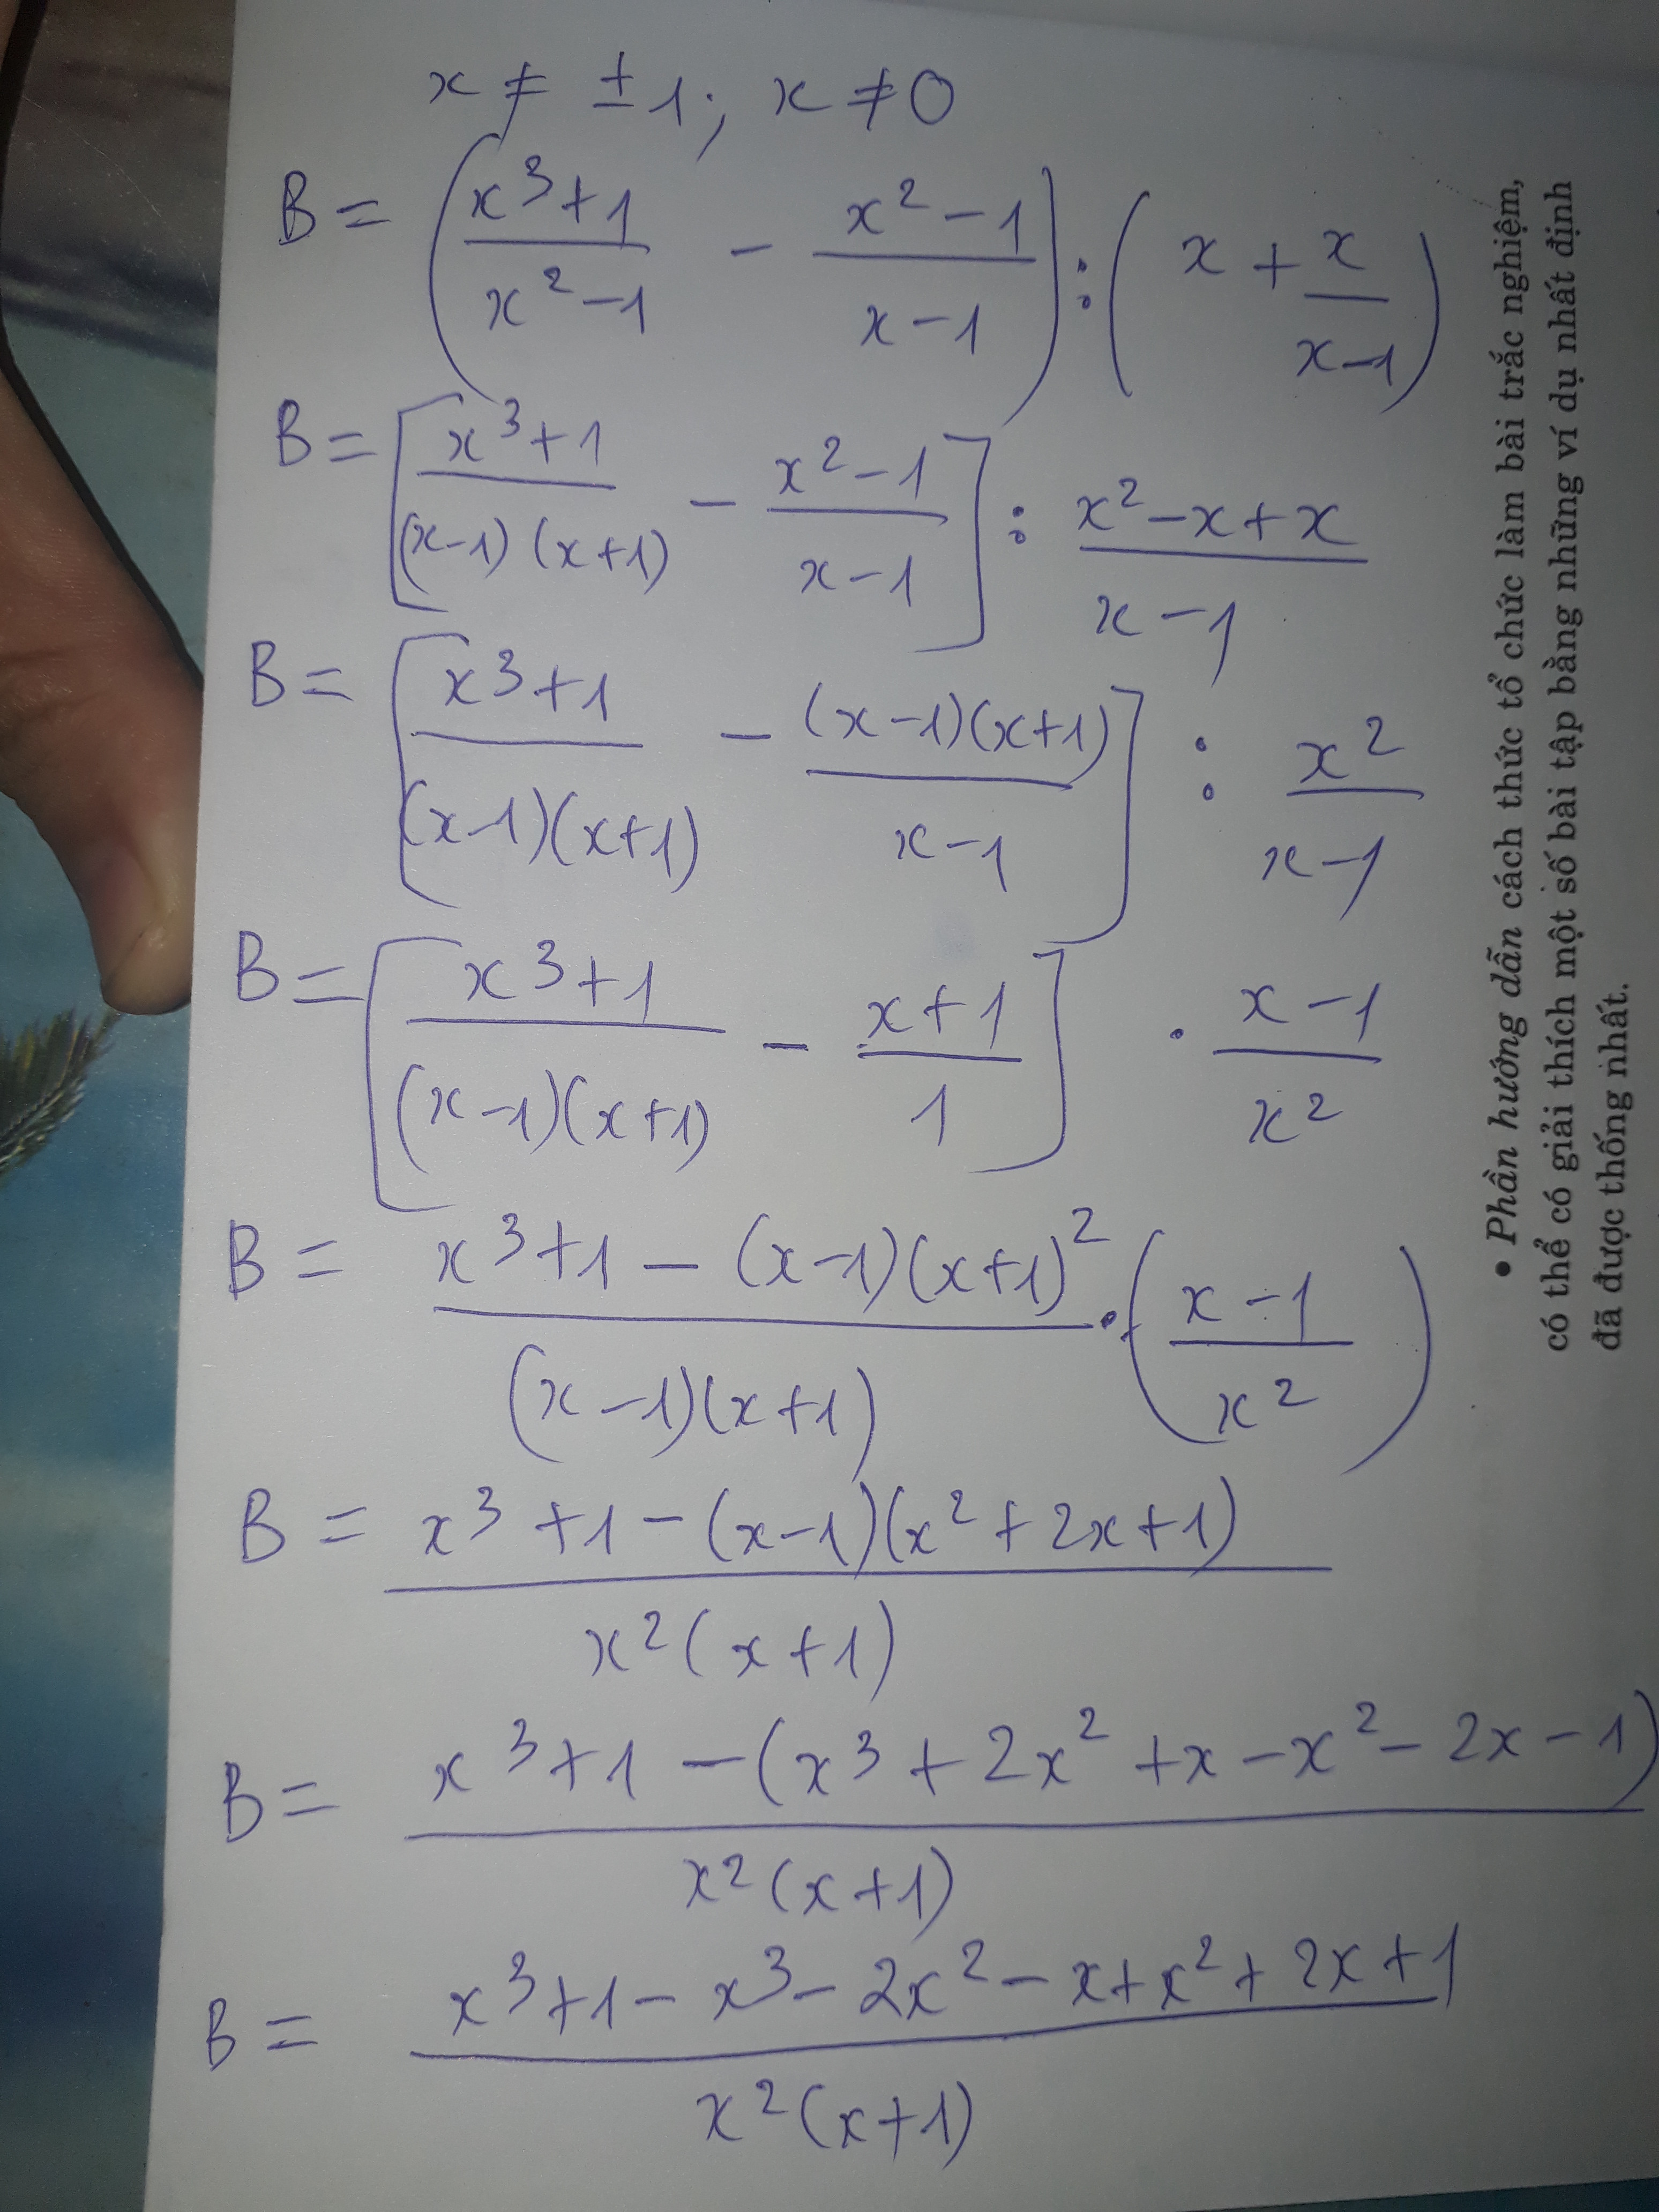 x ≠ ±1; x ≠ 0
B = ( (x³+1)/(x²−1) − (x²−1)/(x−1) ) : ( x + x/(x−1) )
B = [ (x³+1)/((x−1)(x+1)) − (x²−1)/(x−1) ] : (x²−x+x)/(x−1)
B = [ (x³+1)/((x−1)(x+1)) − ((x−1)(x+1))/(x−1) ] : x²/(x−1)
B = [ (x³+1)/((x−1)(x+1)) − (x+1)/1 ] · (x−1)/x²
B = (x³+1−(x−1)(x+1)²)/((x−1)(x+1)) · ( (x−1)/x² )
B = (x³+1−(x−1)(x²+2x+1))/(x²(x+1))
B = (x³+1−(x³+2x²+x−x²−2x−1))/(x²(x+1))
B = (x³+1−x³−2x²−x+x²+2x+1)/(x²(x+1))
• Phần hướng dẫn cách thức tổ chức làm bài trắc nghiệm,
có thể có giải thích một số bài tập bằng những ví dụ nhất định
đã được thống nhất.